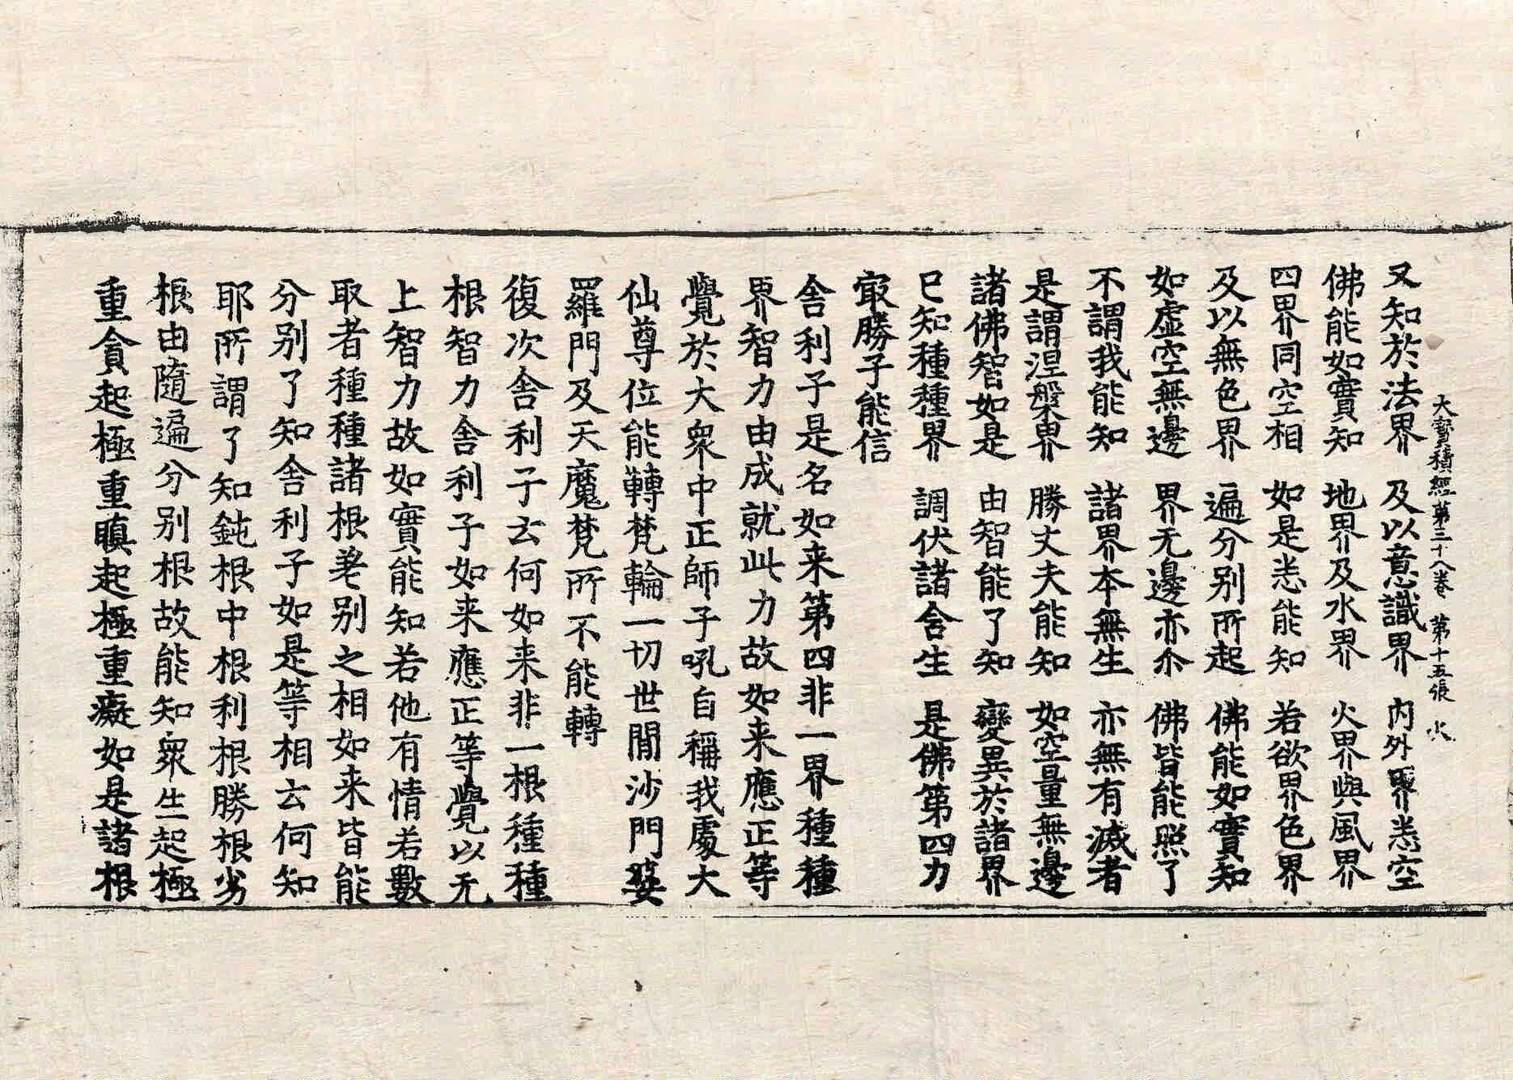 大寶積經第三十八卷　第十五張　火
又知於法界　及以意識界　內外界悉空
佛能如實知　地界及水界　火界與風界
四界同空相　如是悉能知　若欲界色界
及以無色界　遍分別所起　佛能如實知
如虛空無邊　界无邊亦尒　佛皆能照了
不謂我能知　諸界本無生　亦無有滅者
是謂涅槃界　勝丈夫能知　如空量無邊
諸佛智如是　由智能了知　變異於諸界
已知種種界　調伏諸含生　是佛第四力
㝡勝子能信
舍利子是名如来第四非一界種種
界智力由成就此力故如来應正等
覺於大衆中正師子吼自稱我處大
仙尊位能轉梵輪一切世間沙門婆
羅門及天魔梵所不能轉
復次舍利子云何如来非一根種種
根智力舍利子如来應正等覺以无
上智力故如實能知若他有情若數
取者種種諸根差别之相如来皆能
分别了知舍利子如是等相云何知
耶所謂了知鈍根中根利根勝根劣
根由隨遍分别根故能知衆生起極
重貪起極重瞋起極重癡如是諸根